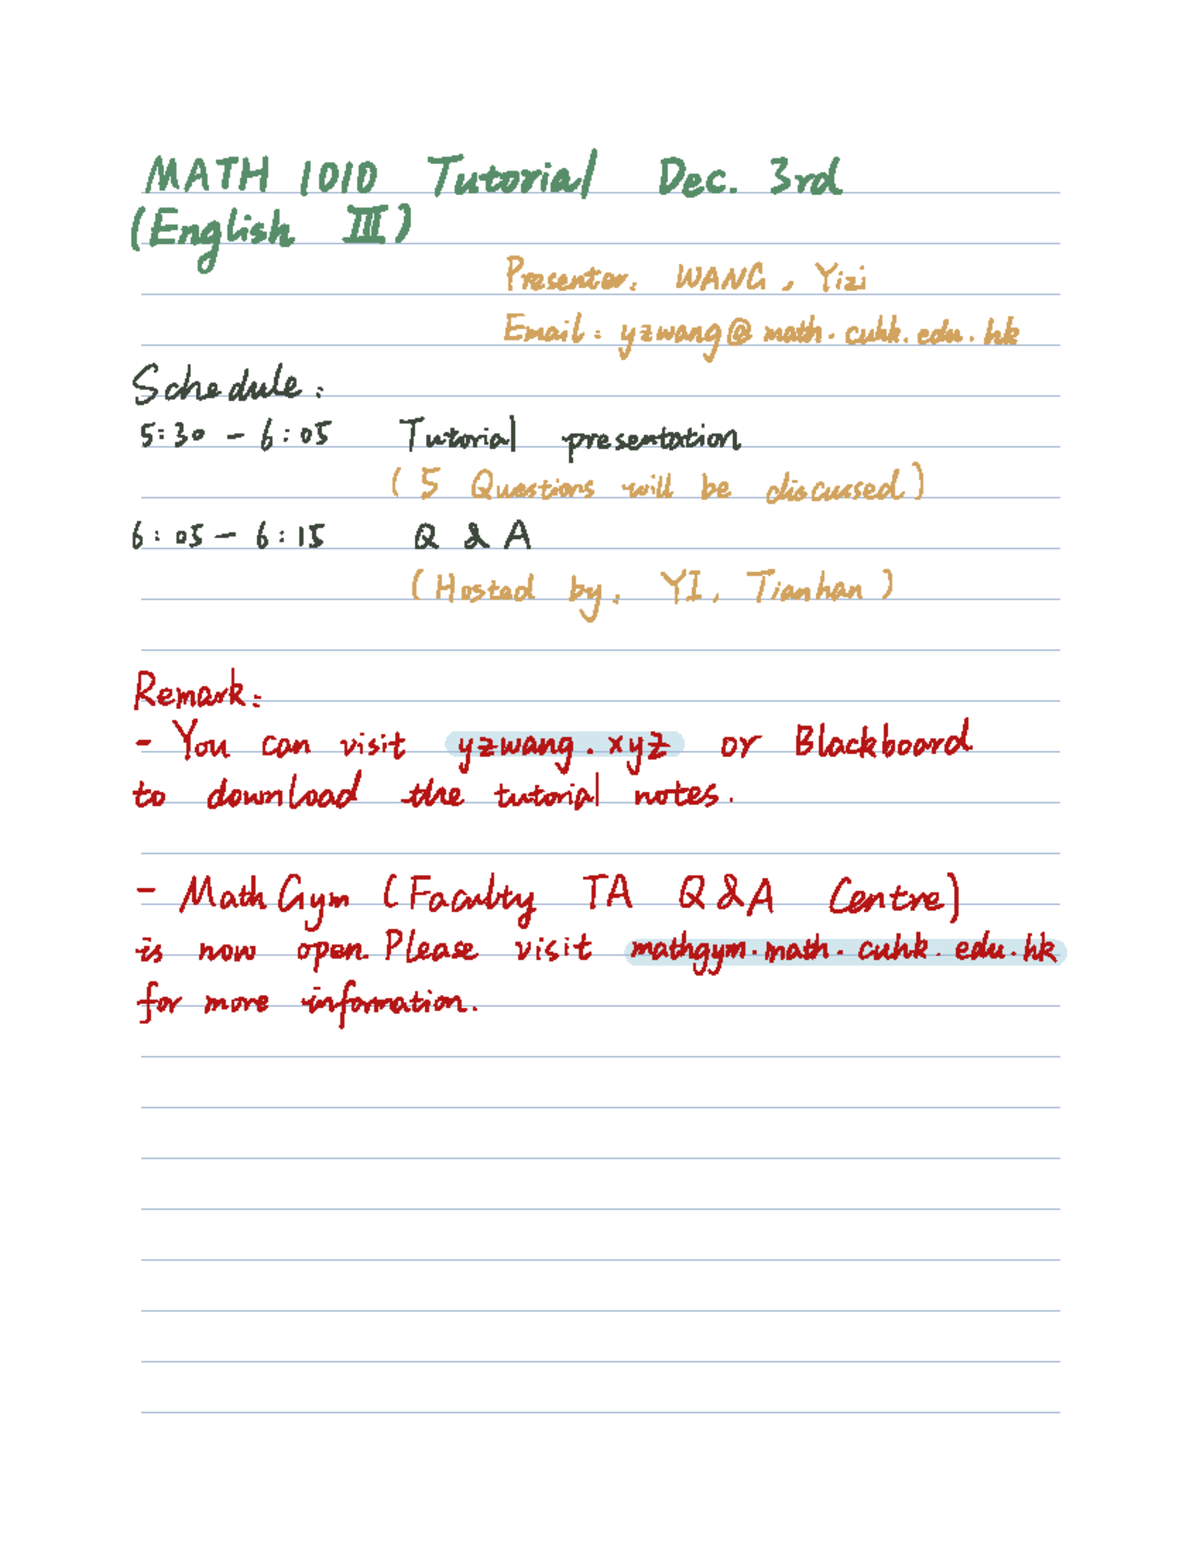 MATH 1010 Tutorial Dec. 3rd
(English III)
Presenter: WANG, Yizi
Email: yzwang@math.cuhk.edu.hk
Schedule:
5:30 - 6:05 Tutorial presentation
( 5 Questions will be discussed)
6:05 - 6:15 Q & A
(Hosted by: YI, Tianhan)
Remark:
- You can visit yzwang.xyz or Blackboard
to download the tutorial notes.
- Math Gym (Faculty TA Q&A Centre)
is now open. Please visit mathgym.math.cuhk.edu.hk
for more information.